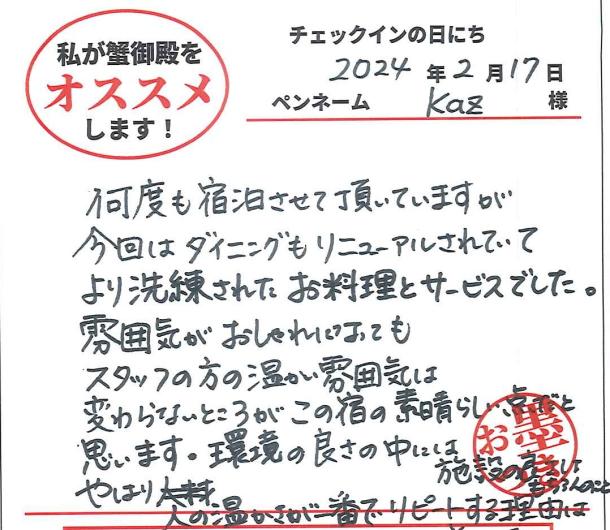 私が蟹御殿を
オススメ
します！
チェックインの日にち
2024年2月17日
ペンネーム Kaz 様
何度も宿泊させて頂いていますが
今回はダイニングもリニューアルされていて
より洗練されたお料理とサービスでした。
雰囲気がおしゃれになっても
スタッフの方の温かい雰囲気は
変わらないところがこの宿の素晴らしい点だと
思います。環境の良さの中には
施設の良さは
もちろんのこと
やはり
人の温かさが一番でリピートする理由は
お墨